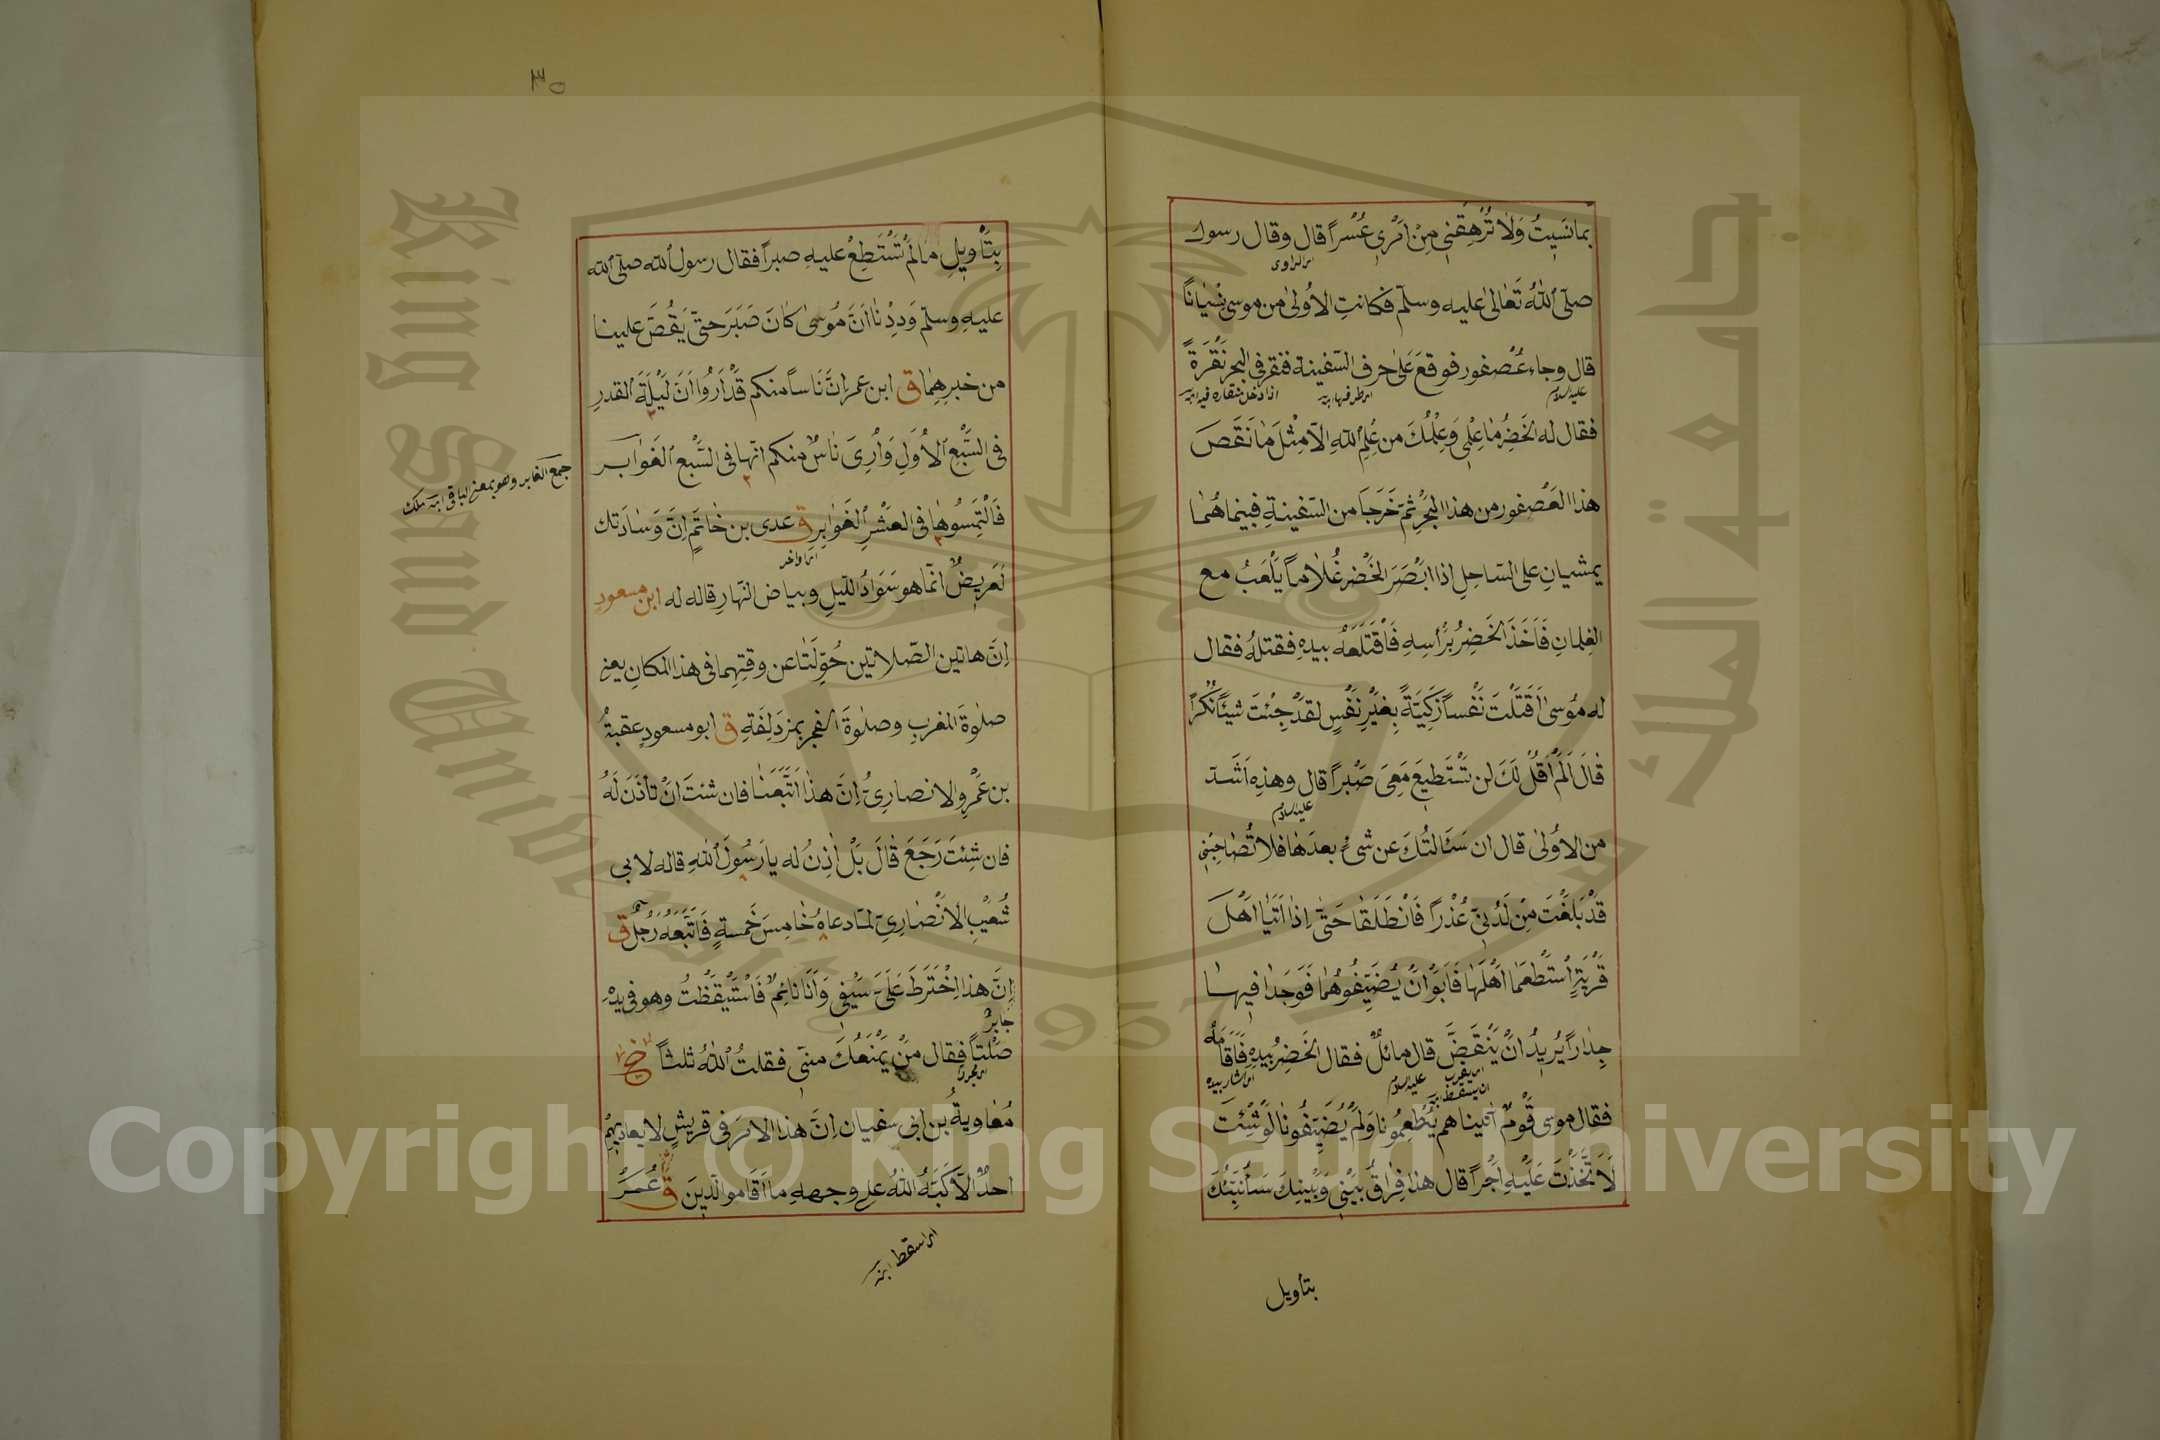 بِمَا نَسِيتُ وَلَا تُرْهِقْنِي مِنْ اَمْرِي عُسْراً قال وقال رسول
اى الراوى
صلّى اللهُ تَعَالىٰ عليه وسلّم فكانتِ الاُولىٰ من موسىٰ نِسْيَاناً
قال وجاء عُصْفور فوقعَ عَلىٰ حرف السّفينة فنقر فى البحر نَقْرَةً
عليه السلام
اى طرفها ابنه
فقال له الخَضِرُ مَا عِلْمِى وَعِلْمُكَ من عِلْمِ اللهِ الاّ مِثْلَ مَا نَقَصَ
هذا العُصْفور من هذا البَحْرِ ثمّ خَرَجَا من السّفينةِ فبينما هُمَا
يمشيانِ على السّاحِلِ اذا ابْصَرَ الخَضِر غُلاماً يَلْعَبُ مع
الغِلمانِ فَاَخَذَ الخَضِرُ بِرَأسِهِ فَاقْتَلَعَهُ بيدهِ فقتلهُ فقال
له مُوسىٰ اَقَتَلْتَ نَفْساً زَكِيَّةً بِغَيْرِ نَفْسٍ لَقَدْ جِئْتَ شيئًا نُكْراً
قَالَ اَلَمْ اَقُلْ لَكَ لن تَسْتَطيعَ مَعِىَ صَبْراً قال وهذِهِ اَشَدّ
عليه السلام
من الاُولىٰ قال ان سَئَالتُكَ عن شَىْءٍ بعدَهَا فلا تُصَاحِبْنِى
قَدْ بَلَغْتَ مِن لَدُنِّى عُذْراً فَانْطَلَقَا حَتّىٰ اِذَا اَتَيَا اَهْلَ
قَرْيَةٍ اسْتَطْعَمَا اَهْلَهَا فَاَبَوْا اَنْ يُضَيِّفُوهُمَا فَوَجَدَا فِيهَا
جِدَاراً يُريدُ اَنْ يَنْقَضَّ قال مائلٌ فقال الخَضِرُ بِيَدِهِ فَاَقَامَهُ
اى يقرب ان يسقط
عليه السلام
اى اشار بيده
فقال موسى قَوْمٌ اتيناهم يُطْعِمُونا وَلَمْ يُضَيِّفُونَا لَوْ شِئْتَ
لَاتَّخَذْتَ عَلَيْهِ اَجْراً قال هذا فِرَاقُ بَيْنِى وَبَيْنِكَ سَاُنَبِّئُكَ
بتأويل
٣٥
بِتَأْوِيلِ مَا لَمْ تَسْتَطِعْ عليهِ صبراً فقال رسول الله صلّى الله
عليهِ وسلّم وَدِدْنَا اَنَّ مُوسىٰ كَانَ صَبَرَ حتىّ يَقُصَّ علينا
من خبرِهِمَا ق ابن عمر اِنَّ نَاساً منكم قَدْ اَرُوا اَنَّ لَيْلَةَ القدرِ
فى السَّبْعِ الاُوَلِ وَاُرِىَ نَاسٌ منكم انّها فى السَّبْعِ الغَوَابر
جمع الغابر وهو بمعنى الباقى ابن ملك
فَالْتَمِسُوهَا فى العَشْرِ الغَوَابِرِ ق عدى بن حَاتَمٍ اِنَّ وَسَادَتك
اى اواخر
لَعَرِيضٌ انّما هو سَوَادُ اللّيلِ وبياض النّهارِ قاله له ابن مسعودٍ
اِنَّ هاتين الصّلاتين حُوِّلَتَا عن وقتِهِما فى هذا المكانِ يعنى
صلوٰةَ المغربِ وصلوٰةَ الفجر بمزدَلِفَةِ ق ابو مسعودٍ عقبةُ
بن عَمْرٍو الانصارِىُّ اِنَّ هذَا اتَّبَعَنَا فان شئتَ اَنْ تأذَنَ لَهُ
فان شِئتَ رَجَعَ قَالَ بَلْ اٰذنُ له يا رَسُولَ اللهِ قاله لابى
شُعَيْبِ الاَنْصَارِىِّ لمّا دعاهُ خَامِسَ خَمسةٍ فَاتَّبَعَهُ رَجُلٌ ق
اِنَّ هذا اِخْتَرَطَ عَلَىَّ سَيْفِى وَاَنَا نائِمٌ فَاسْتَيْقَظْتُ وهو فى يدهِ
جابرُ
صَلْتاً فقال مَنْ يَمْنَعُكَ منّى فقلتُ اللهُ ثلثاً خ
اى مجردا
مُعَاوِيةُ بن ابى سفيان اِنَّ هذا الامرَ فى قريشٍ لا يعاديهِمْ
احدٌ الاّ كَبَّهُ اللهُ على وجههِ ما اَقَاموا الدّينَ ق عُمَرُ
اى اسقط ابنه
Copyright © King Saud University
King Saud University
جامعة الملك سعود
1957